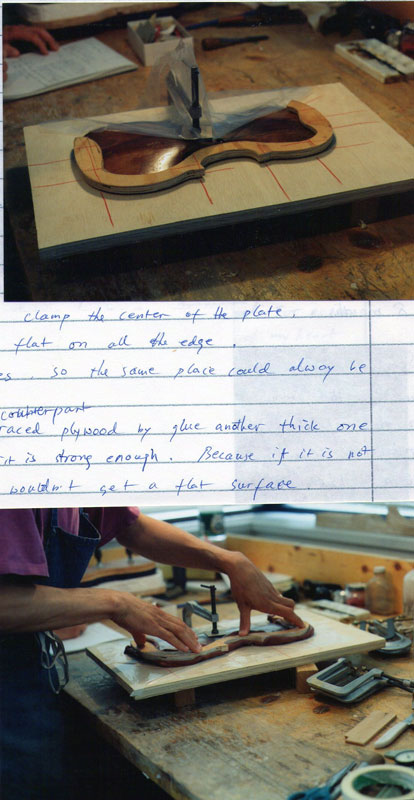 clamp the center of the plate,
flat on all the edge.
es. so the same place could alway be
counterpart
raced plywood by glue another thick one
it is strong enough. Because if it is not
wouldn't get a flat surface